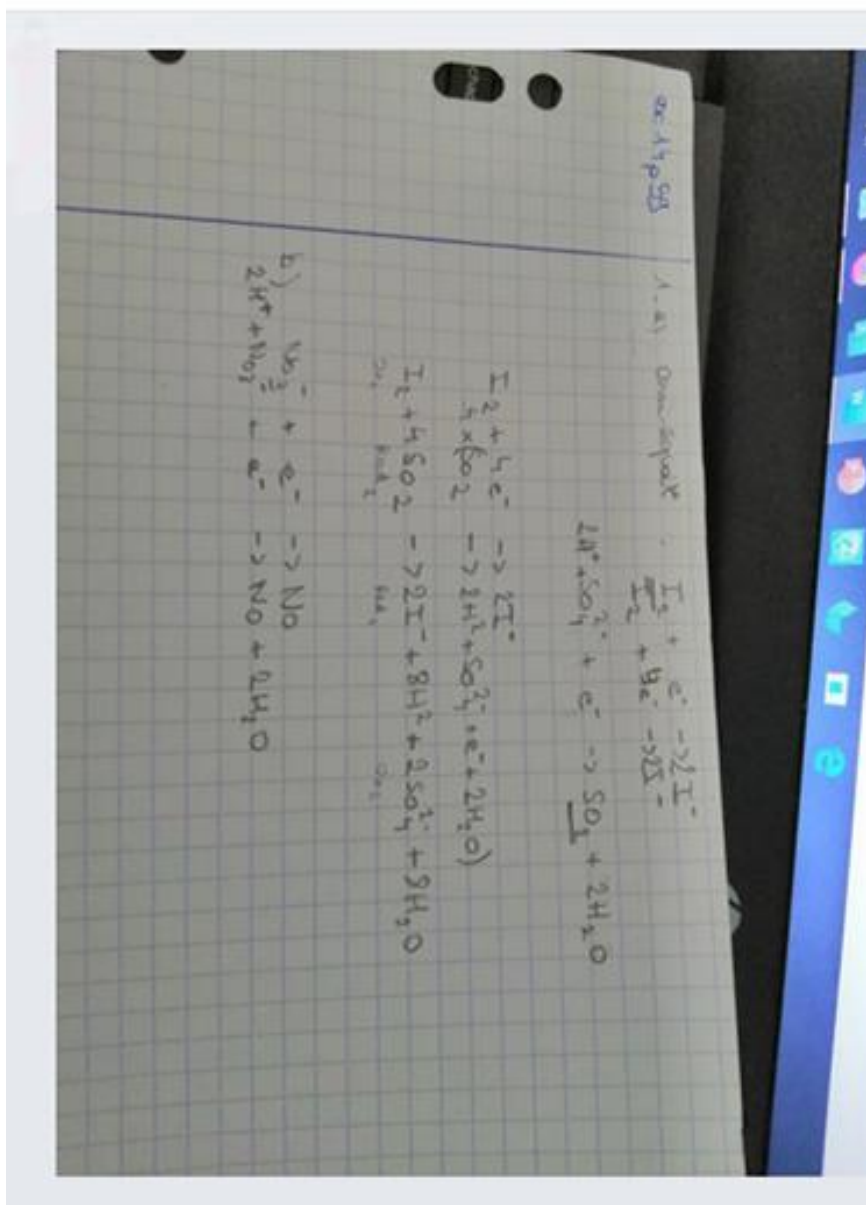 ex 14 p 59
1. a) : I₂ + e⁻ -> 2I⁻
I₂ + 4e⁻ -> 2I⁻
2H⁺ + SO₄²⁻ + e⁻ -> SO₂ + 2H₂O
I₂ + 4e⁻ -> 2I⁻
4x(SO₂ -> 2H² + SO₄²⁻ + e⁻ + 2H₂O)
I₂ + 4SO₂ -> 2I⁻ + 8H² + 2SO₄²⁻ + 8H₂O
Ox₁ Red₂ Red₁ Ox₂
b) NO₃⁻ + e⁻ -> NO
2H⁺ + NO₃⁻ + e⁻ -> NO + 2H₂O